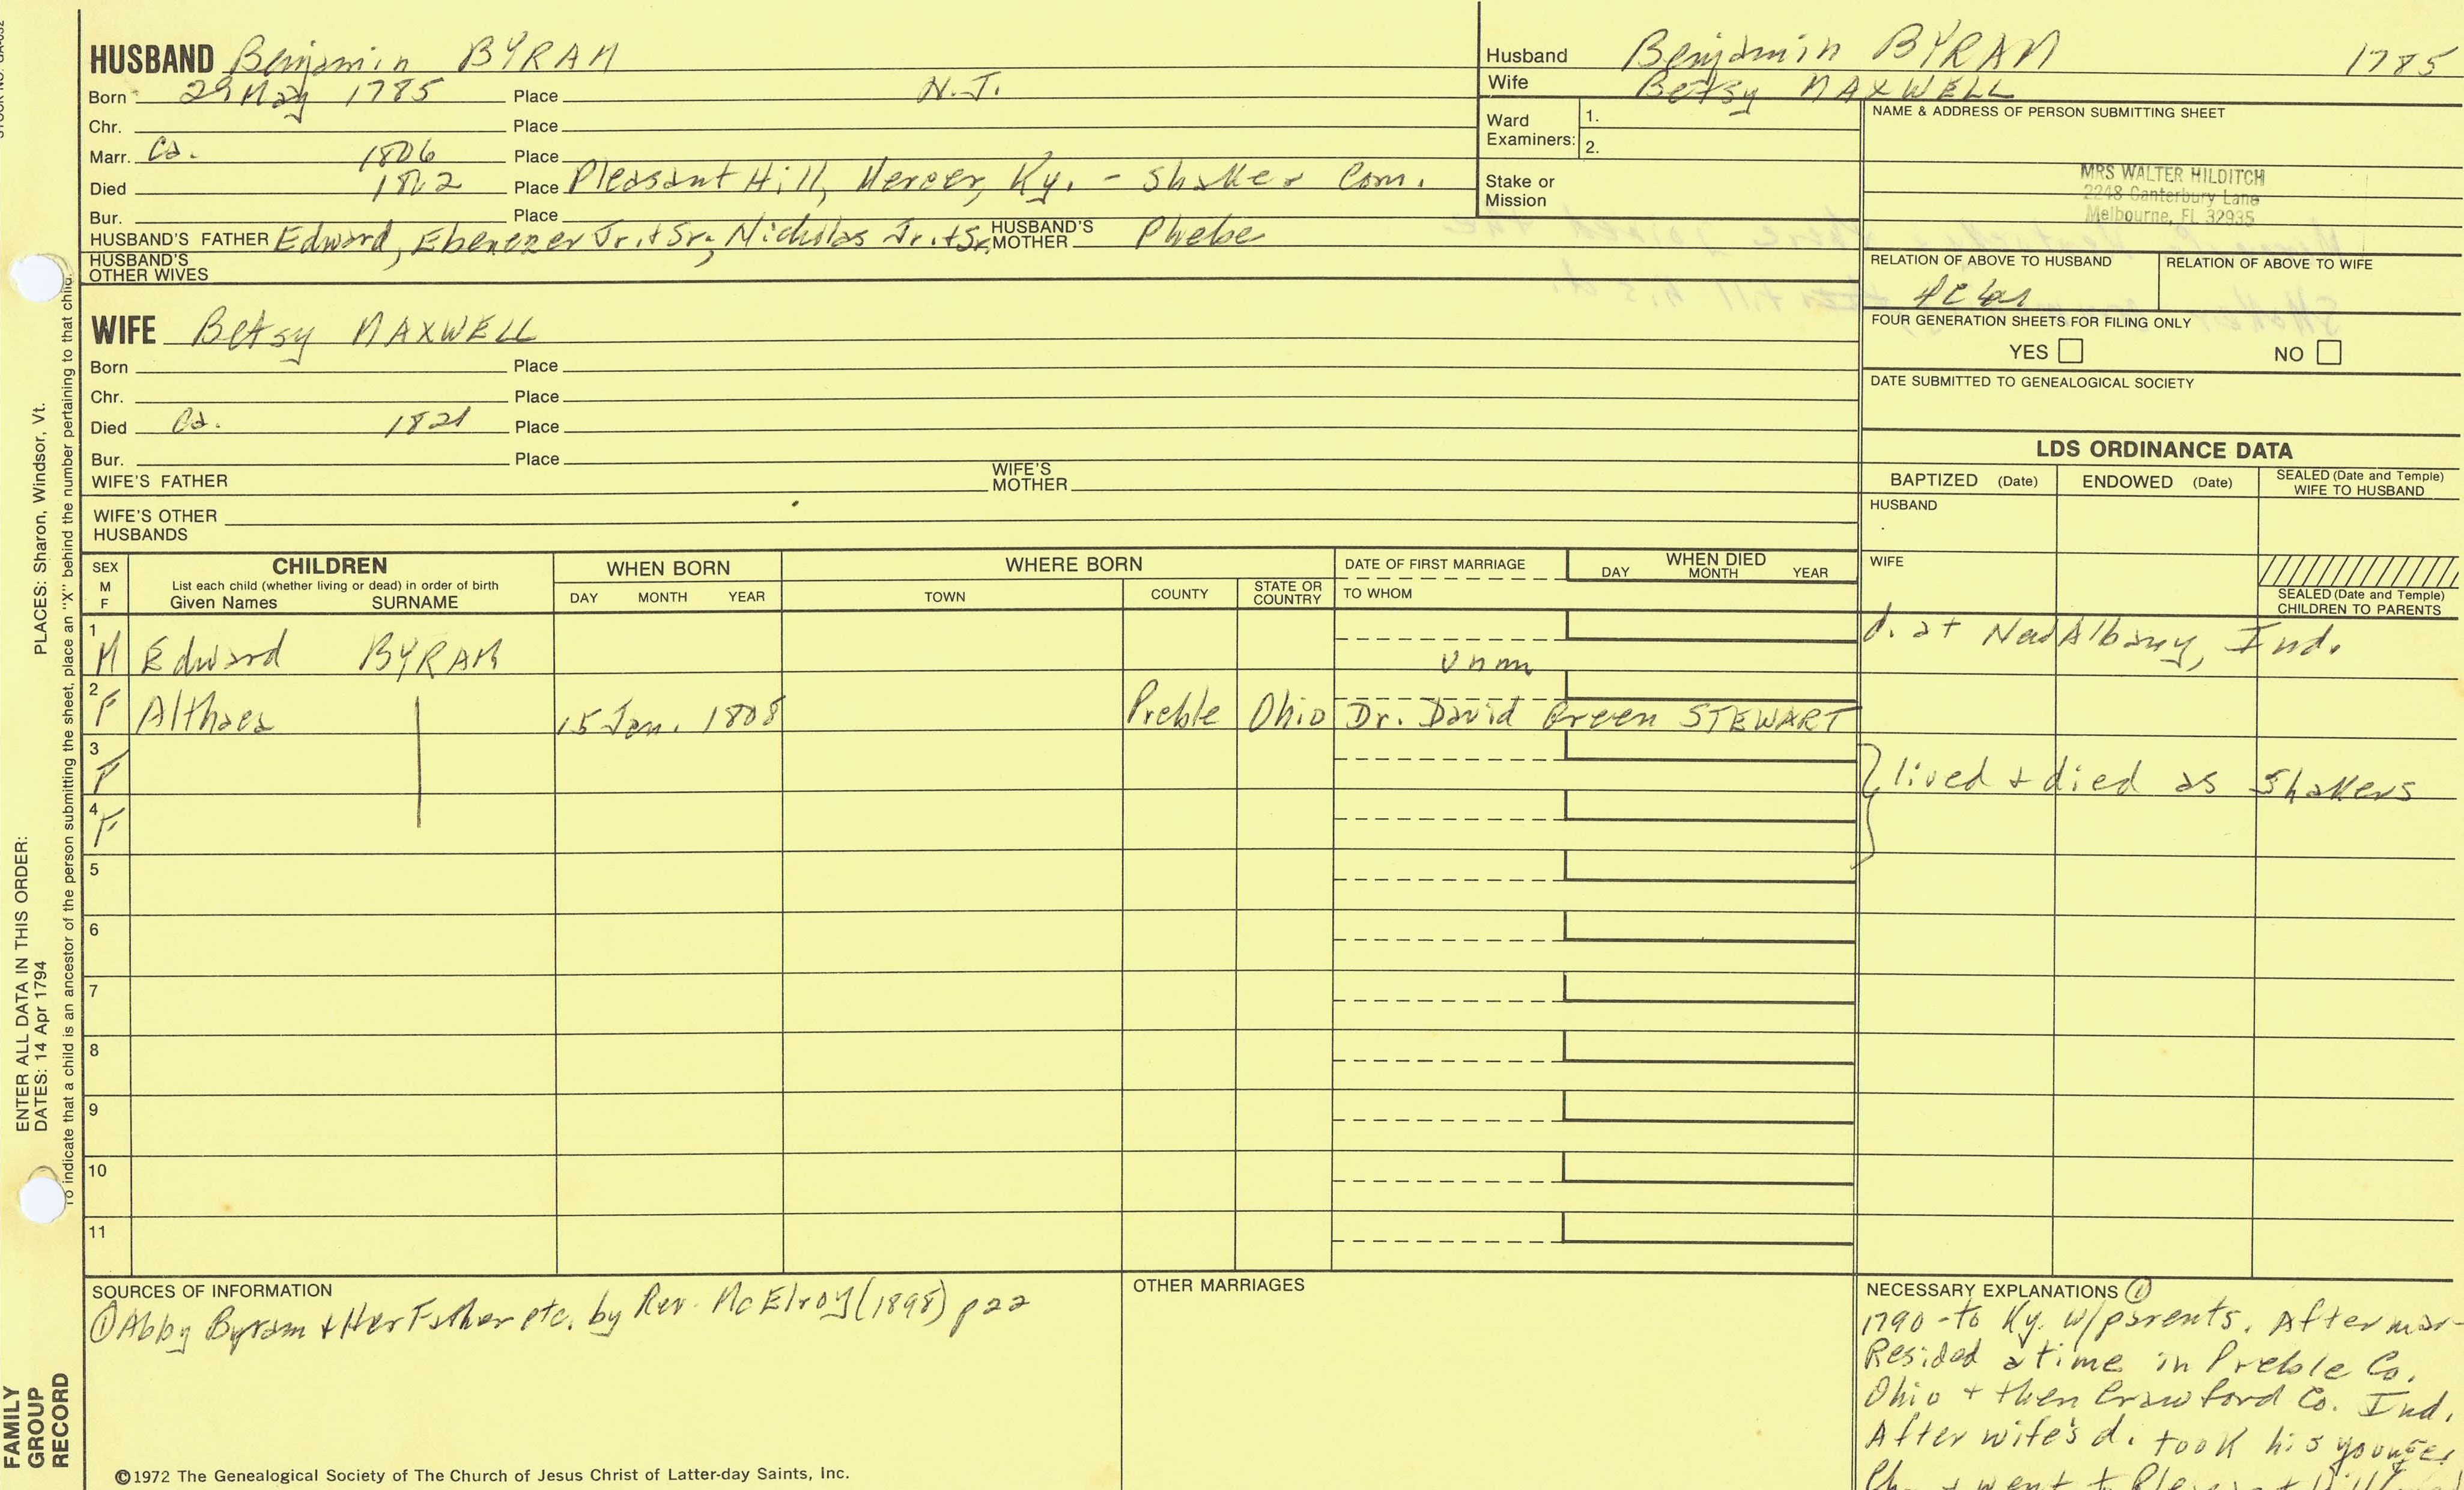 HUSBAND Benjamin BYRAM
Born 29 May 1785 Place N.J.
Chr. Place
Marr. Ca. 1806 Place
Died Place Pleasant Hill, Mercer, Ky. - Shaker Com.
Bur. Place
HUSBAND'S FATHER Edward, Ebenezer Jr. + Sr., Nicholas Jr. + Sr. HUSBAND'S MOTHER Phebe
HUSBAND'S OTHER WIVES
WIFE Betsy MAXWELL
Born Place
Chr. Place
Died Ca. 1821 Place
Bur. Place
WIFE'S FATHER WIFE'S MOTHER
WIFE'S OTHER HUSBANDS
Husband Benjamin BYRAM 1785
Wife Betsy MAXWELL
Ward Examiners: 1.
2.
Stake or Mission
NAME & ADDRESS OF PERSON SUBMITTING SHEET
MRS WALTER HILDITCH
2248 Canterbury Lane
Melbourne, FL 32935
RELATION OF ABOVE TO HUSBAND RELATION OF ABOVE TO WIFE
FOUR GENERATION SHEETS FOR FILING ONLY
YES NO
DATE SUBMITTED TO GENEALOGICAL SOCIETY
LDS ORDINANCE DATA
BAPTIZED (Date) ENDOWED (Date) SEALED (Date and Temple) WIFE TO HUSBAND
HUSBAND
WIFE
SEALED (Date and Temple) CHILDREN TO PARENTS
SEX M F
CHILDREN
List each child (whether living or dead) in order of birth
Given Names SURNAME
WHEN BORN
DAY MONTH YEAR
WHERE BORN
TOWN COUNTY STATE OR COUNTRY
DATE OF FIRST MARRIAGE
TO WHOM
WHEN DIED
DAY MONTH YEAR
1 M Edward BYRAM unm d. at New Albany, Ind.
2 F Althaea 15 Jan. 1808 Preble Ohio Dr. David Green STEWART
3 F lived + died as Shakers
4 F
5
6
7
8
9
10
11
SOURCES OF INFORMATION
① Abby Byram + Her Father etc. by Rev. McElroy (1898) p 22
OTHER MARRIAGES
NECESSARY EXPLANATIONS ①
1790 - to Ky. w/parents. After mar-
Resided a time in Preble Co.
Ohio + then Crawford Co. Ind.
After wife's d. took his younger
Ch. + went to Pleasant Hill
©1972 The Genealogical Society of The Church of Jesus Christ of Latter-day Saints, Inc.
ENTER ALL DATA IN THIS ORDER:
DATES: 14 Apr 1794 PLACES: Sharon, Windsor, Vt.
To indicate that a child is an ancestor of the person submitting the sheet, place an "X" behind the number pertaining to that child.
FAMILY
GROUP
RECORD